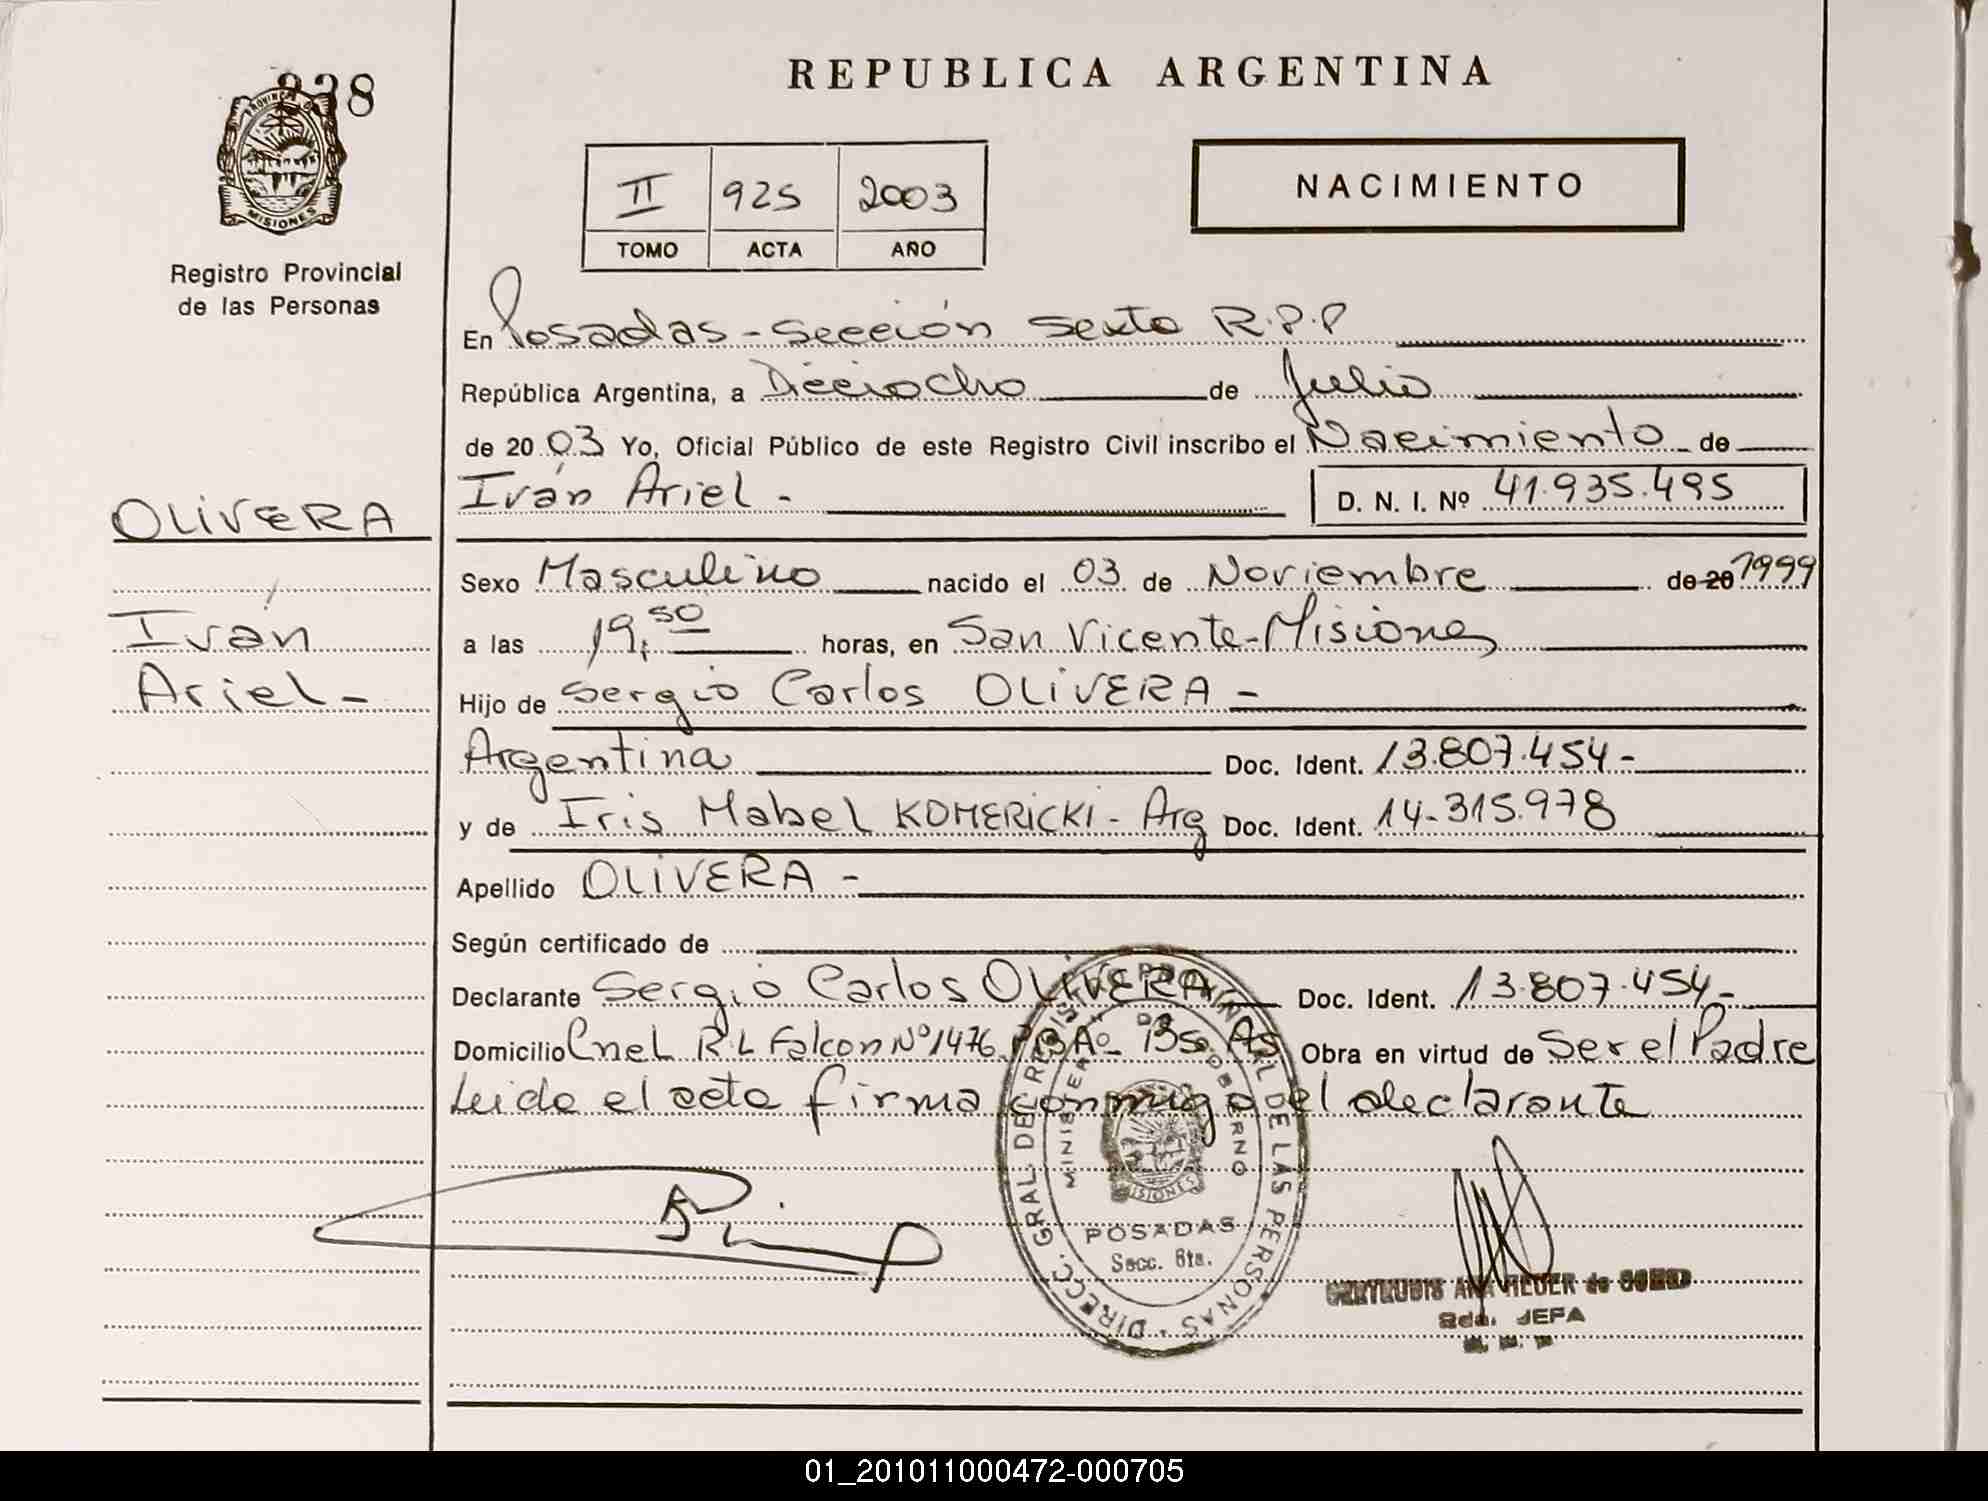 REPUBLICA ARGENTINA
PROVINCIA DE
MISIONES
Registro Provincial
de las Personas
II 925 2003
TOMO ACTA AÑO
NACIMIENTO
En Posadas - Sección Sexta R.P.P
República Argentina, a Dieciocho de Julio
de 20 03 Yo, Oficial Público de este Registro Civil inscribo el Nacimiento de
Iván Ariel - D. N. I. Nº 41.935.495
OLIVERA
Iván
Ariel -
Sexo Masculino nacido el 03 de Noviembre de 20 1999
a las 19,50 horas, en San Vicente - Misiones
Hijo de Sergio Carlos OLIVERA -
Argentina Doc. Ident. 13.807.454 -
y de Iris Mabel KOMERICKI - Arg Doc. Ident. 14.315.978
Apellido OLIVERA -
Según certificado de
Declarante Sergio Carlos OLIVERA Doc. Ident. 13.807.454 -
Domicilio Cnel R.L Falcon Nº 1476 Bs As Obra en virtud de Ser el Padre
Leida el acta firma conmigo el declarante
DIRECC. GRAL. DEL REGISTRO PROVINCIAL DE LAS PERSONAS
MINISTERIO DE GOBIERNO
MISIONES
POSADAS
Secc. 6ta.
JEFA
01_201011000472-000705